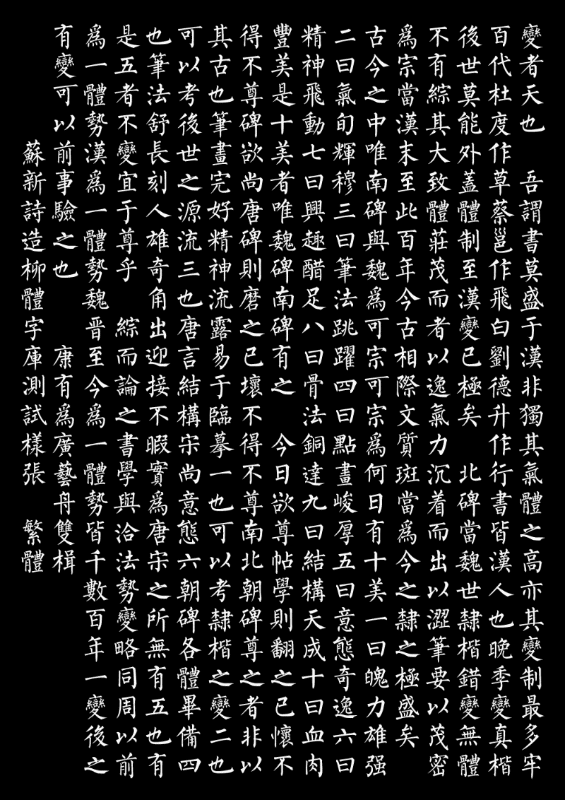 變者天也　吾謂書莫盛于漢非獨其氣體之高亦其變制最多牢
百代杜度作草蔡邕作飛白劉德升作行書皆漢人也晚季變真楷
後世莫能外蓋體制至漢變已極矣　北碑當魏世隸楷錯變無體
不有綜其大致體莊茂而者以逸氣力沉着而出以澀筆要以茂密
為宗當漢末至此百年今古相際文質斑當為今之隸之極盛矣
古今之中唯南碑與魏為可宗可宗為何日有十美一曰魄力雄强
二曰氣旬輝穆三曰筆法跳躍四曰點畫峻厚五曰意態奇逸六曰
精神飛動七曰興趣醋足八曰骨法銅達九曰結構天成十曰血肉
豐美是十美者唯魏碑南碑有之　今日欲尊帖學則翻之已懷不
得不尊碑欲尚唐碑則磨之已壞不得不尊南北朝碑尊之者非以
其古也筆畫完好精神流露易于臨摹一也可以考隸楷之變二也
可以考後世之源流三也唐言結構宋尚意態六朝碑各體畢備四
也筆法舒長刻人雄奇角出迎接不暇實為唐宋之所無有五也有
是五者不變宜于尊乎　綜而論之書學與洽法勢變略同周以前
為一體勢漢為一體勢魏晋至今為一體勢皆千數百年一變後之
有變可以前事驗之也　康有為廣藝舟雙楫
蘇新詩造柳體字庫測試樣張　繁體